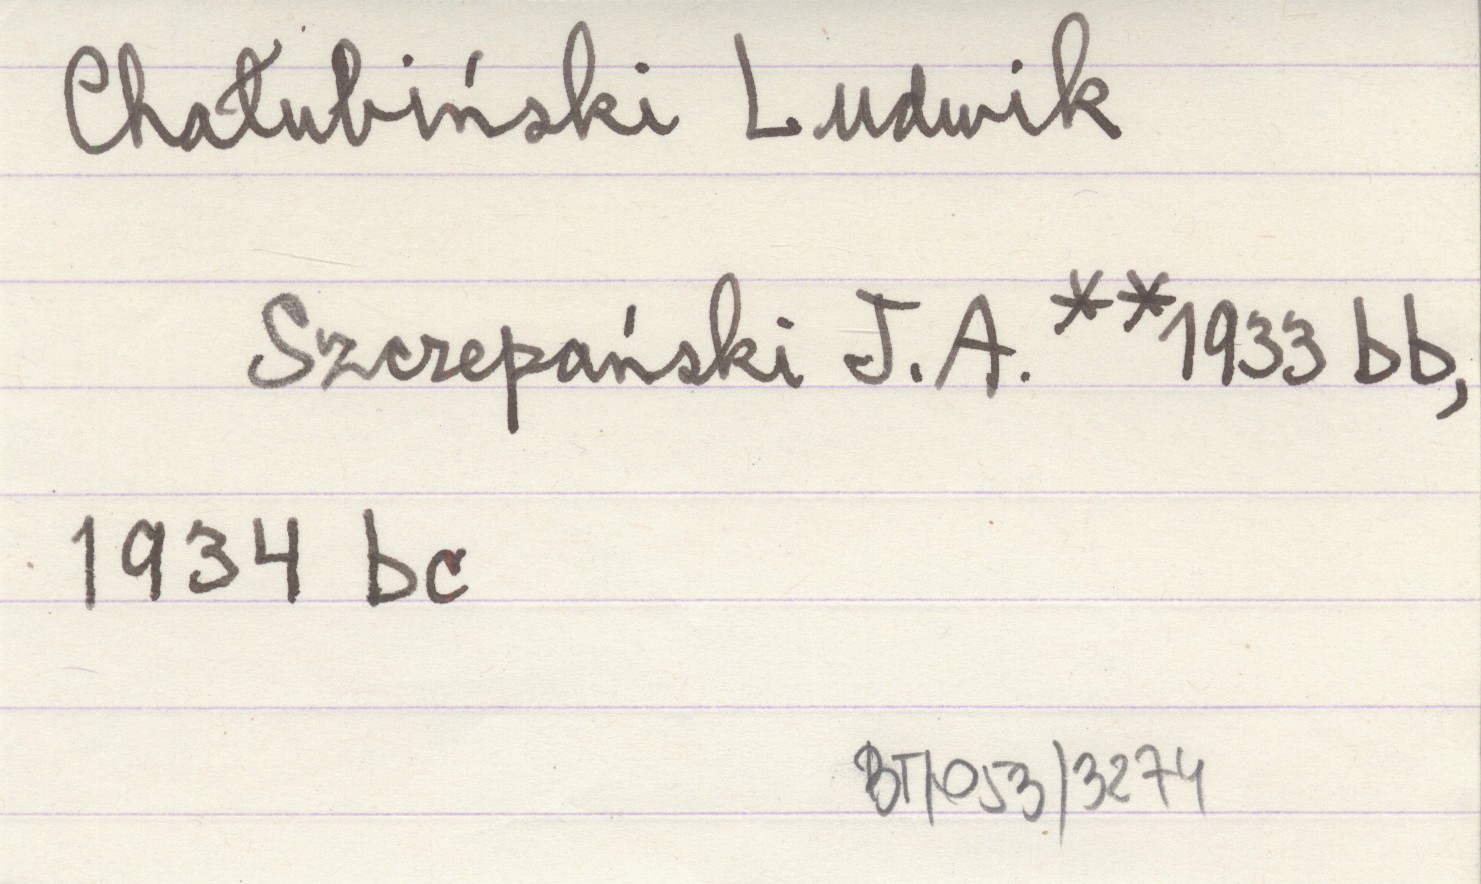 Chałubiński Ludwik
Szczepański J.A. **1933 bb,
1934 bc
BT/053/3274